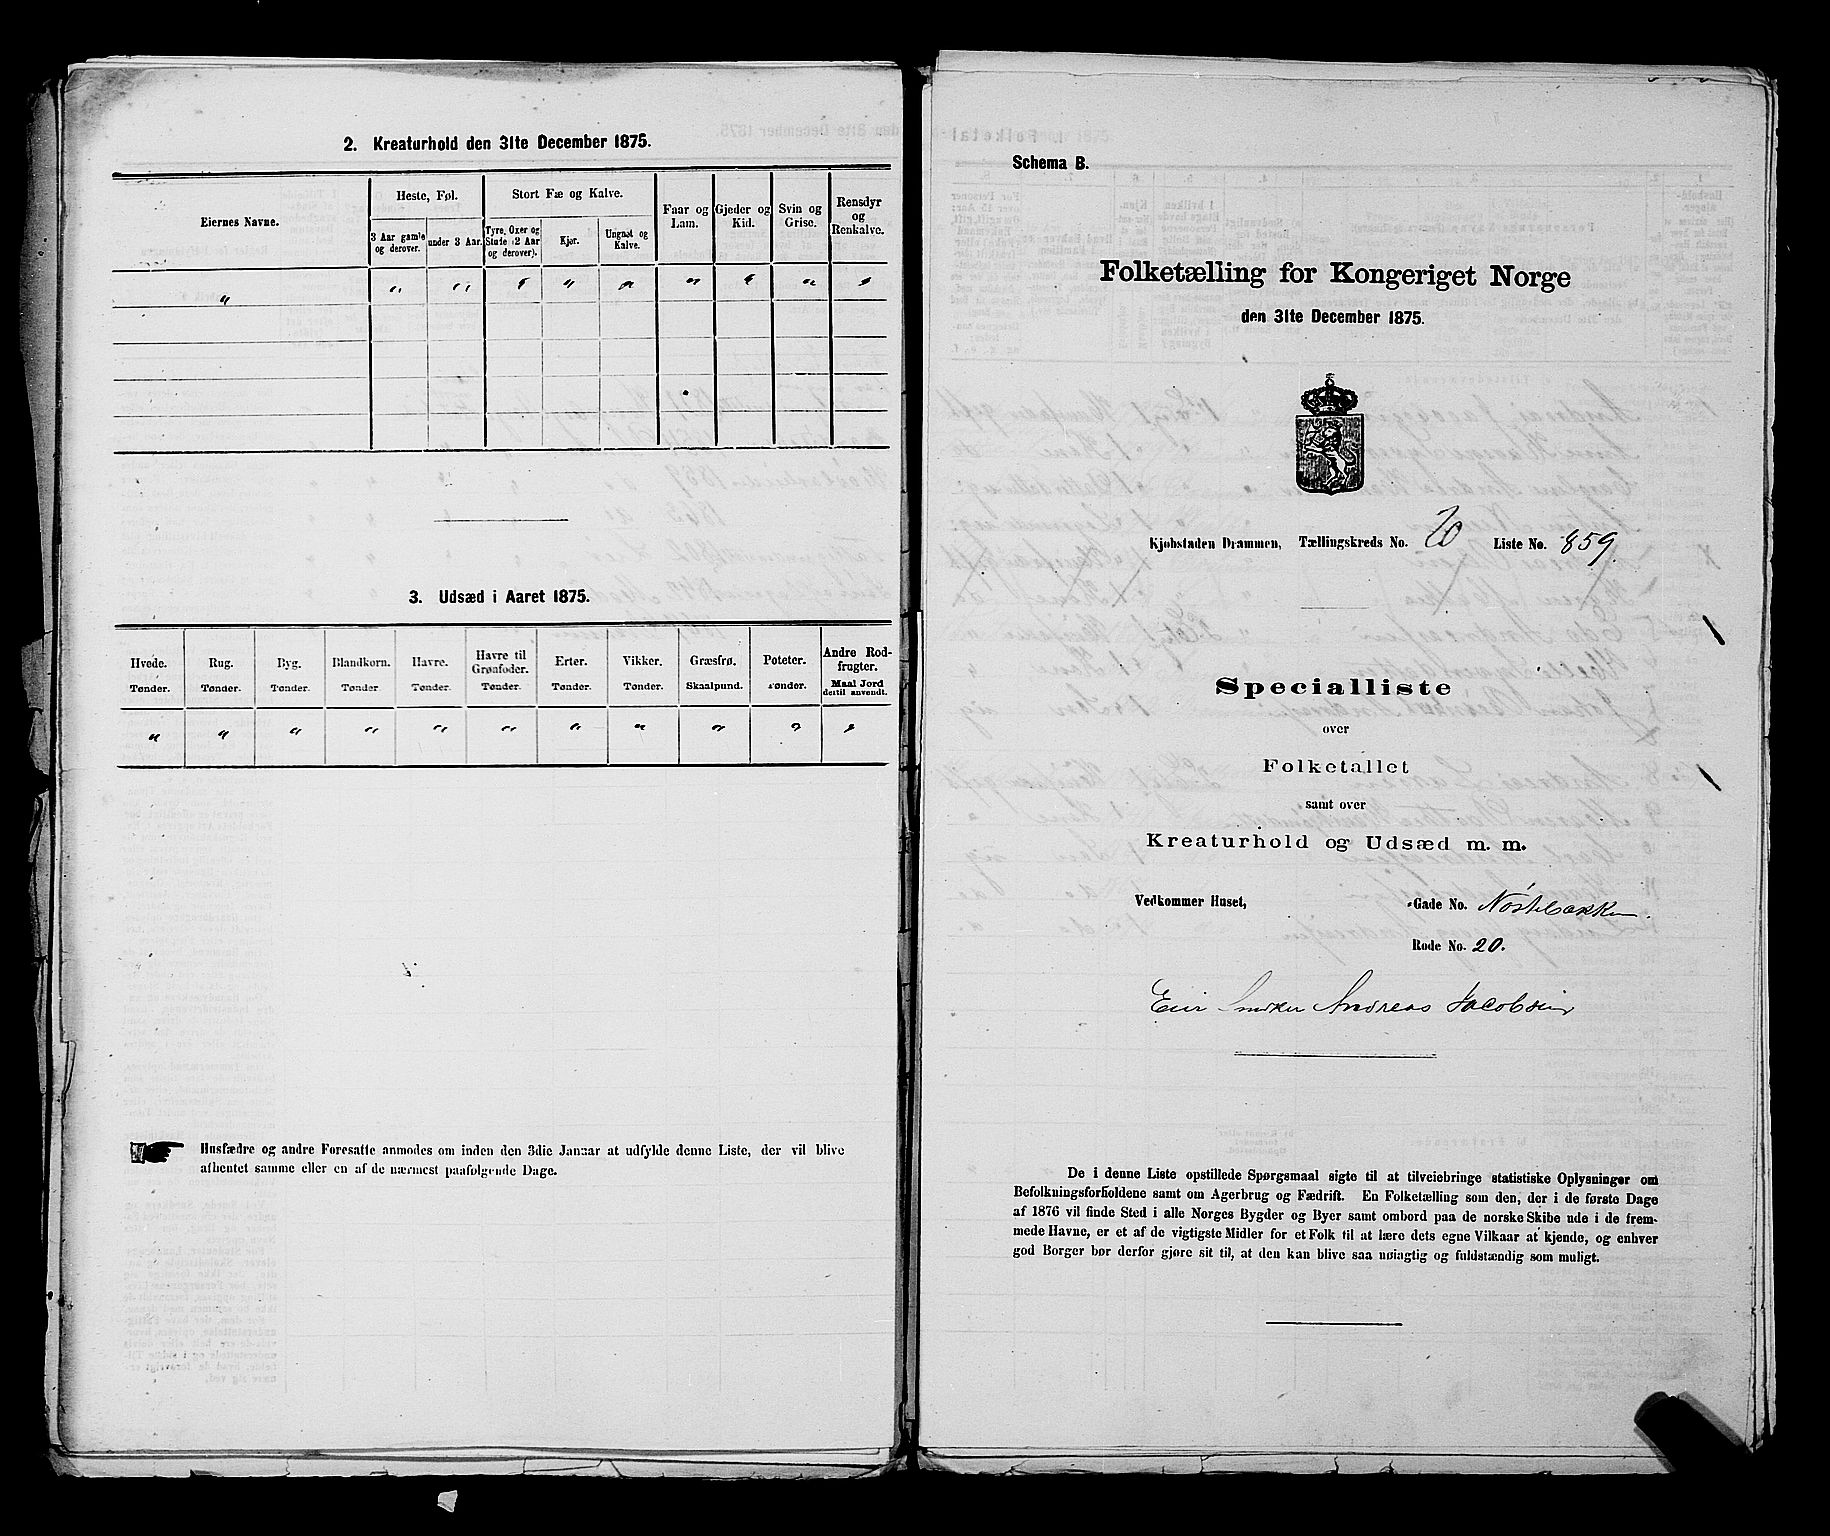 2. Kreaturhold den 31te December 1875.
Eiernes Navne.
Heste, Føl.
Stort Fæ og Kalve.
Faar og Lam.
Gjeder og Kid.
Svin og Grise.
Rensdyr og Renkalve.
3 Aar gamle og derover.
under 3 Aar.
Tyre, Oxer og Stude (2 Aar og derover).
Kjør.
Ungnøt og Kalve.
" " " " " " " " " "
3. Udsæd i Aaret 1875.
Hvede. Rug. Byg. Blandkorn. Havre. Havre til Grønfoder. Erter. Vikker. Græsfrø. Poteter. Andre Rodfrugter.
Tønder. Tønder. Tønder. Tønder. Tønder. Tønder. Tønder. Tønder. Skaalpund. Tønder. Maal Jord dertil anvendt.
" " " " " " " " " " "
Husfædre og andre Foresatte anmodes om inden den 3die Januar at udfylde denne Liste, der vil blive
afhentet samme eller en af de nærmest paafølgende Dage.
Schema B.
Folketælling for Kongeriget Norge
den 31te December 1875.
Kjøbstaden Drammen, Tællingskreds No. 20 Liste No. 859.
Specialliste
over
Folketallet
samt over
Kreaturhold og Udsæd m. m.
Vedkommer Huset, -Gade No. Nøstebakken.
Rode No. 20.
Eier Andreas Jacobsen
De i denne Liste opstillede Spørgsmaal sigte til at tilveiebringe statistiske Oplysninger om
Befolkningsforholdene samt om Agerbrug og Fædrift. En Folketælling som den, der i de første Dage
af 1876 vil finde Sted i alle Norges Bygder og Byer samt ombord paa de norske Skibe ude i de frem-
mede Havne, er et af de vigtigste Midler for et Folk til at lære dets egne Vilkaar at kjende, og enhver
god Borger bør derfor gjøre sit til, at den kan blive saa nøiagtig og fuldstændig som muligt.